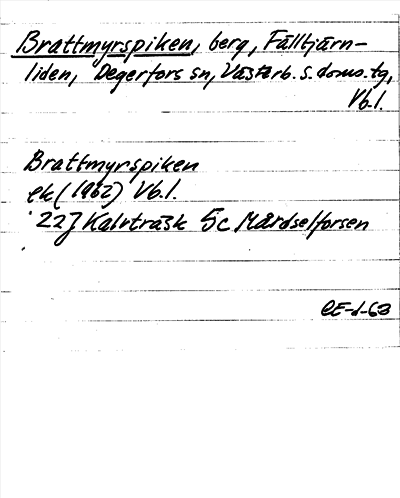 Brattmyrspiken, berg, Fälltjärn-
liden, Degerfors sn, Västerb. s. doms. tg,
Vb.l.
Brattmyrspiken
ek (1962) Vb.l.
22J Kalvträsk 5c Mårdselforsen
CE-d-63